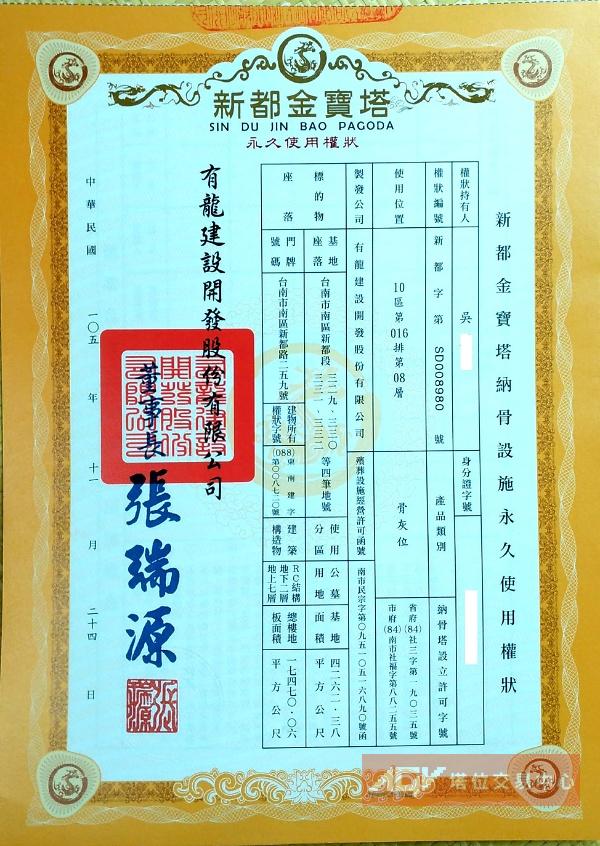 新都金寶塔
SIN DU JIN BAO PAGODA
永久使用權狀
新都金寶塔納骨設施永久使用權狀
權狀持有人
吳
身分證字號
權狀編號
新都字第 SD008980 號
產品類別
納骨塔設立許可字號
使用位置
10區第016排第08層
骨灰位
省府(84)社三字第一九〇三五號
市府(84)南市社福字第八八二五五號
製發公司
有龍建設開發股份有限公司
殯葬設施經營許可函號
南市民宗字第〇九五一〇五一六八九〇號函
標的物座落
基地座落
台南市南區新都段
三二九、三三〇
等四筆地號
使用分區
公墓用地
基地面積
四二六一.三八平方公尺
門牌號碼
台南市南區新都路二五九號
建物所有權狀字號
(088)東南建字
建築構造物
RC結構
地下二層
地上七層
總樓地板面積
一七四七〇.〇六平方公尺
有龍建設開發股份有限公司
董事長
張瑞源
中華民國一〇五年十一月二十四日
塔位交易中心